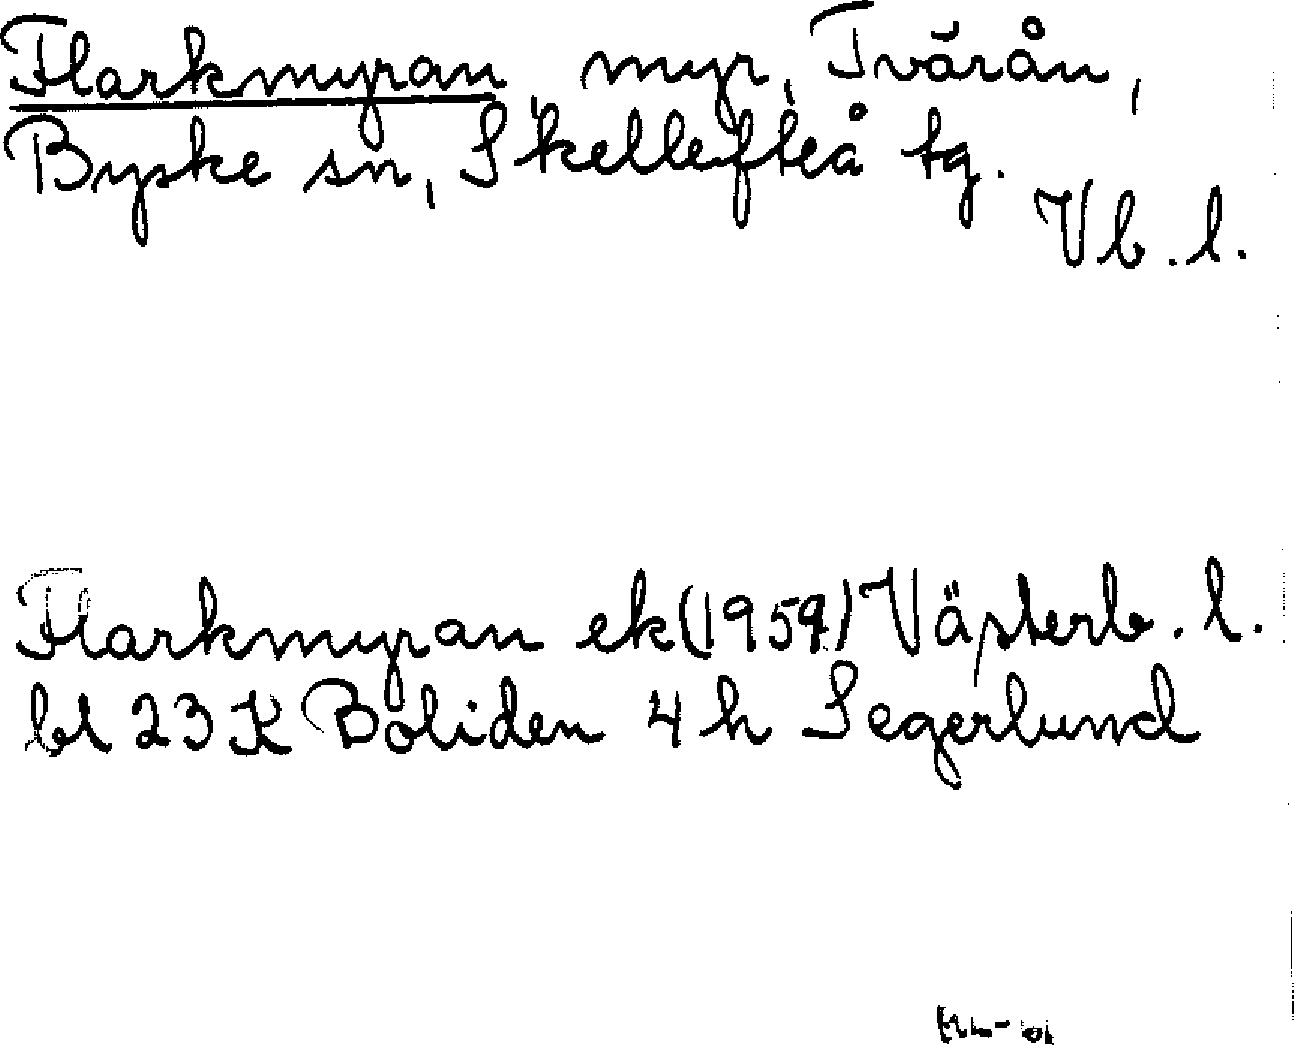 Flarkmyran, myr, Tvärån,
Byske sn, Skellefteå tg.
Vb. l.
Flarkmyran ek (1959) Västerb. l.
bl 23 K Boliden 4 h Segerlund